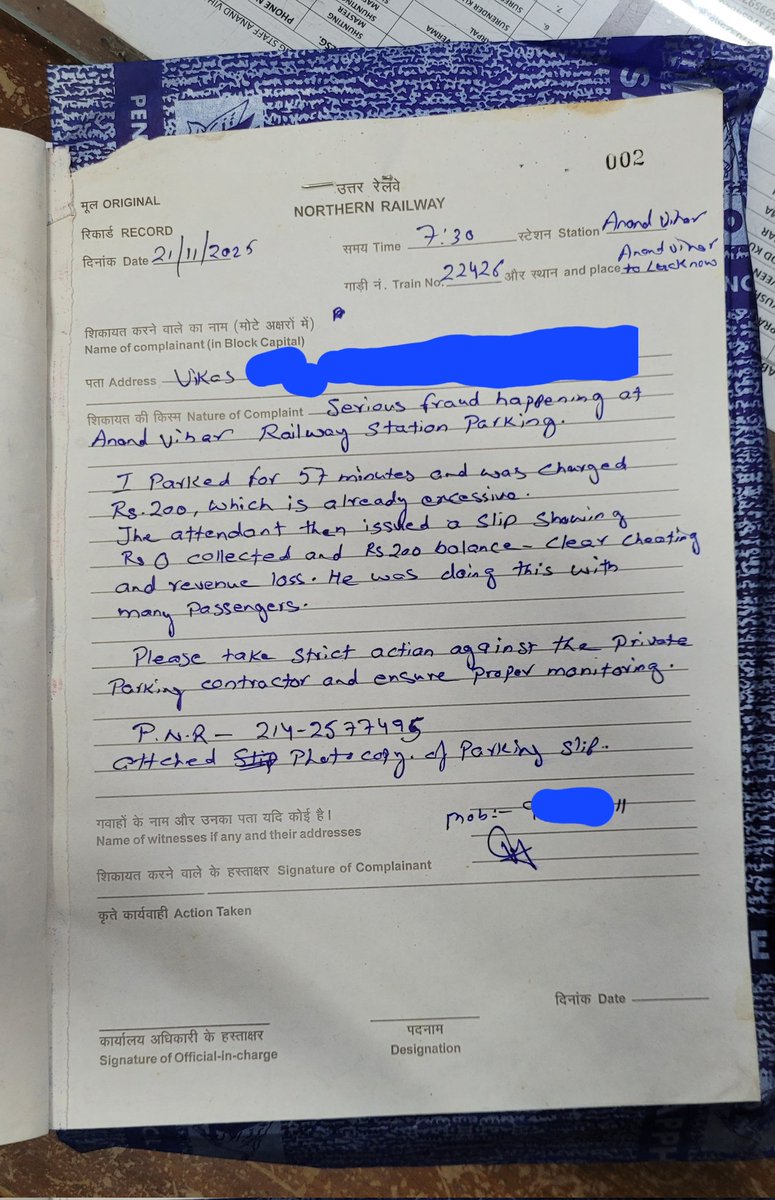 002
मूल ORIGINAL
उत्तर रेलवे
NORTHERN RAILWAY
रिकार्ड RECORD
दिनांक Date 21/11/2025
समय Time 7:30 स्टेशन Station Anand Vihar
गाड़ी नं. Train No. 22426 और स्थान and place Anand Vihar to Lucknow
शिकायत करने वाले का नाम (मोटे अक्षरों में)
Name of complainant (in Block Capital)
पता Address Vikas
शिकायत की किस्म Nature of Complaint Serious fraud happening at
Anand Vihar Railway Station Parking.
I Parked for 57 minutes and was charged
Rs.200, which is already excessive.
The attendant then issued a slip showing
Rs 0 collected and Rs 200 balance - clear cheating
and revenue loss. He was doing this with
many Passengers.
Please take strict action against the Private
Parking contractor and ensure proper monitoring.
P.N.R - 214-2577495
attched Photocopy. of Parking slip.
गवाहों के नाम और उनका पता यदि कोई है।
Name of witnesses if any and their addresses
mob:-
शिकायत करने वाले के हस्ताक्षर Signature of Complainant
कृते कार्यवाही Action Taken
दिनांक Date
कार्यालय अधिकारी के हस्ताक्षर
Signature of Official-in-charge
पदनाम
Designation